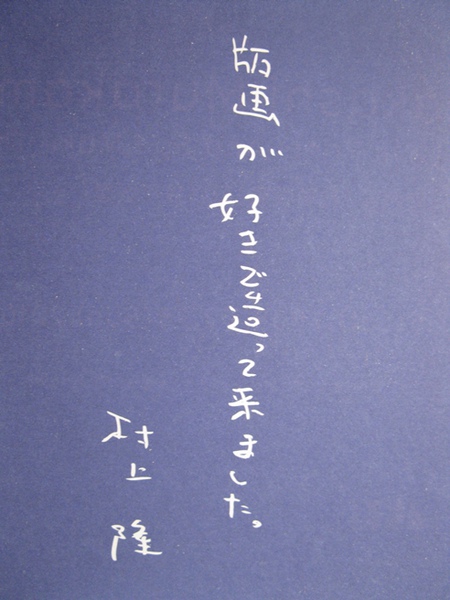 版画が好きで造って来ました。
村上隆